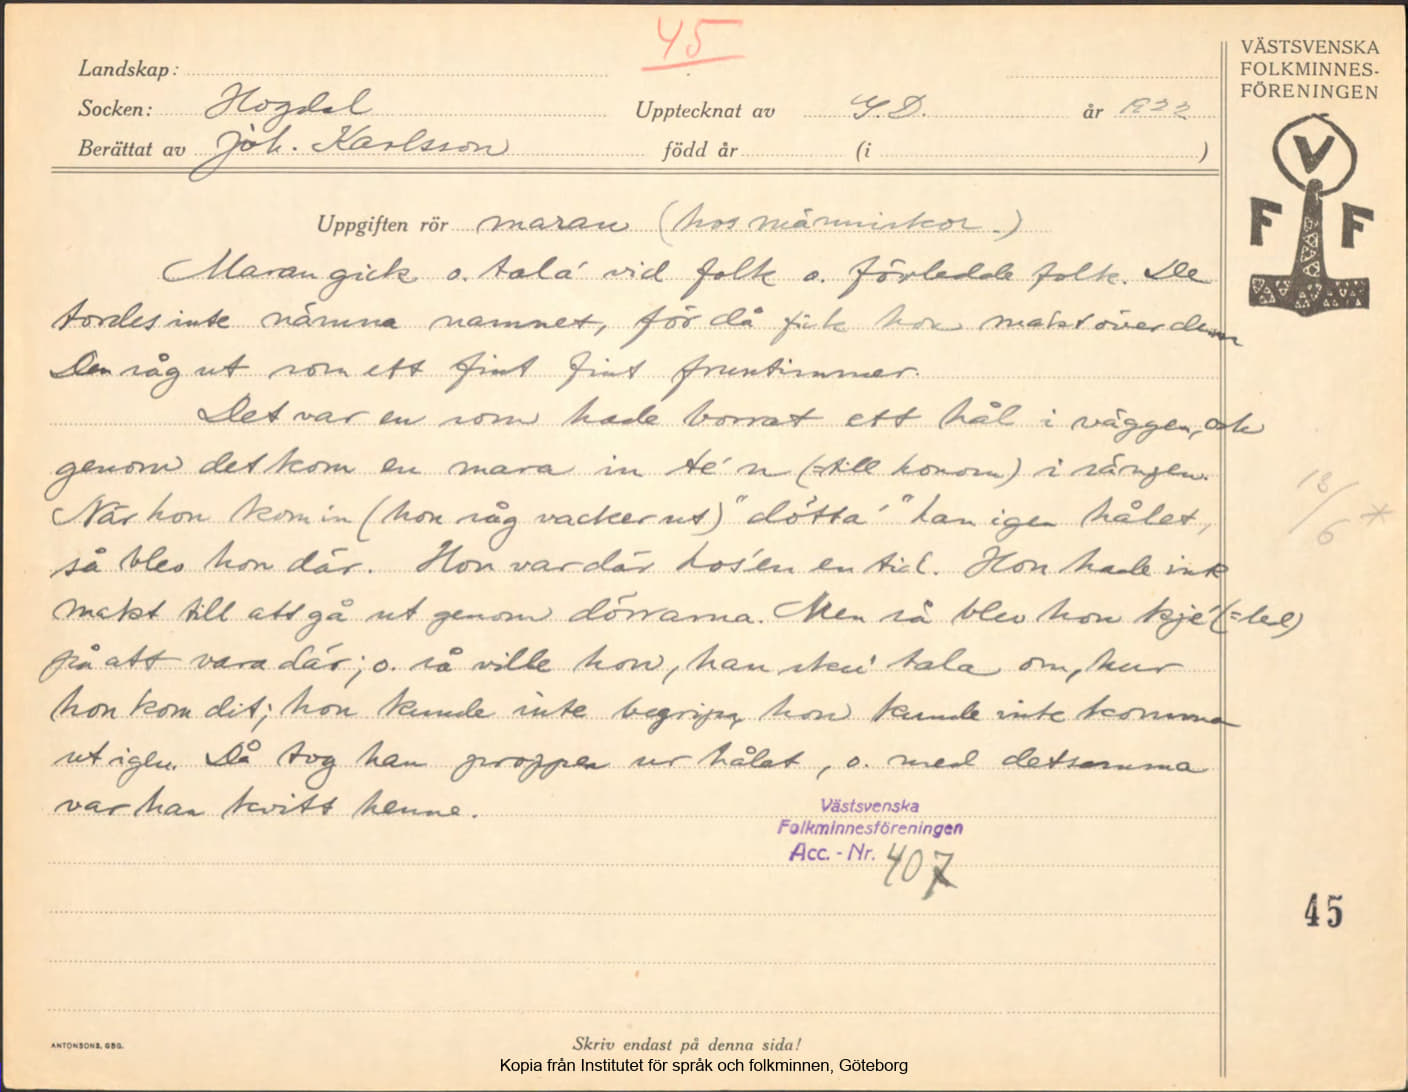 45
VÄSTSVENSKA
FOLKMINNES-
FÖRENINGEN
Landskap:
Socken: Hogdal Upptecknat av G.D. år
Berättat av Joh. Karlsson född år (i )
V
F F
Uppgiften rör maran (hos människor.)
Maran gick o. tala' vid folk o. förledde folk. De
tordes inte nämna namnet, för då fick hon makt över dem
Den såg ut som ett fint fint fruntimmer.
Det var en som hade borrat ett hål i väggen, och
genom det kom en mara in te'n (=till honom) i sängen.
När hon kom in (hon såg vacker ut) "dôtta'" han igen hålet,
så blev hon där. Hon var där hos'en en tid. Hon hade inte
makt till att gå ut genom dörrarna. Men så blev hon kje' (=led)
på att vara där; o. så ville hon, han sku' tala om, hur
hon kom dit; hon kunde inte begripa, hon kunde inte komma
ut igen. Då tog han proppen ur hålet, o. med detsamma
var han kvitt henne.
18/6 *
Västsvenska
Folkminnesföreningen
Acc. - Nr. 407
45
ANTONSONS, GBG.
Skriv endast på denna sida!
Kopia från Institutet för språk och folkminnen, Göteborg